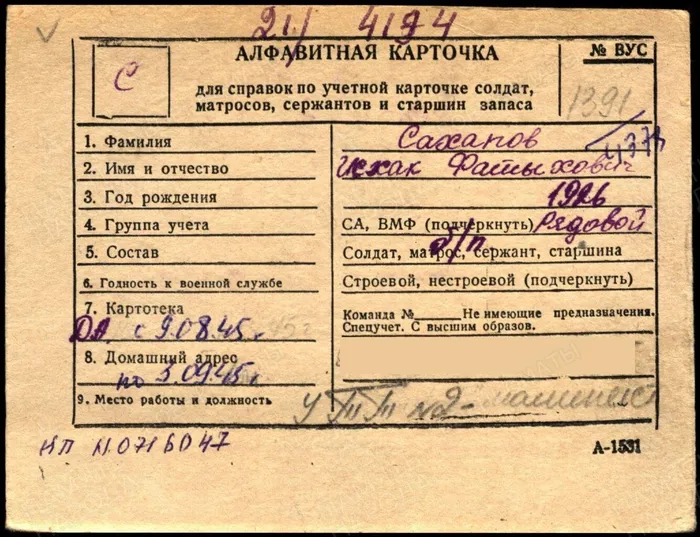 21/ 4194
АЛФАВИТНАЯ КАРТОЧКА
№ ВУС
С
для справок по учетной карточке солдат,
матросов, сержантов и старшин запаса
1391
1. Фамилия
Сахапов
2. Имя и отчество
Исхак Фатыхович
3. Год рождения
1926
4. Группа учета
СА, ВМФ (подчеркнуть) Рядовой
5. Состав
Солдат, матрос, сержант, старшина
б/п
6. Годность к военной службе
Строевой, нестроевой (подчеркнуть)
7. Картотека
Команда №______ Не имеющие предназначения.
Спецучет. С высшим образов.
ДА с 9.08.45 г.
8. Домашний адрес
по 3.09.45 г.
9. Место работы и должность
№2 - машинист
НП №0716047
А-1531